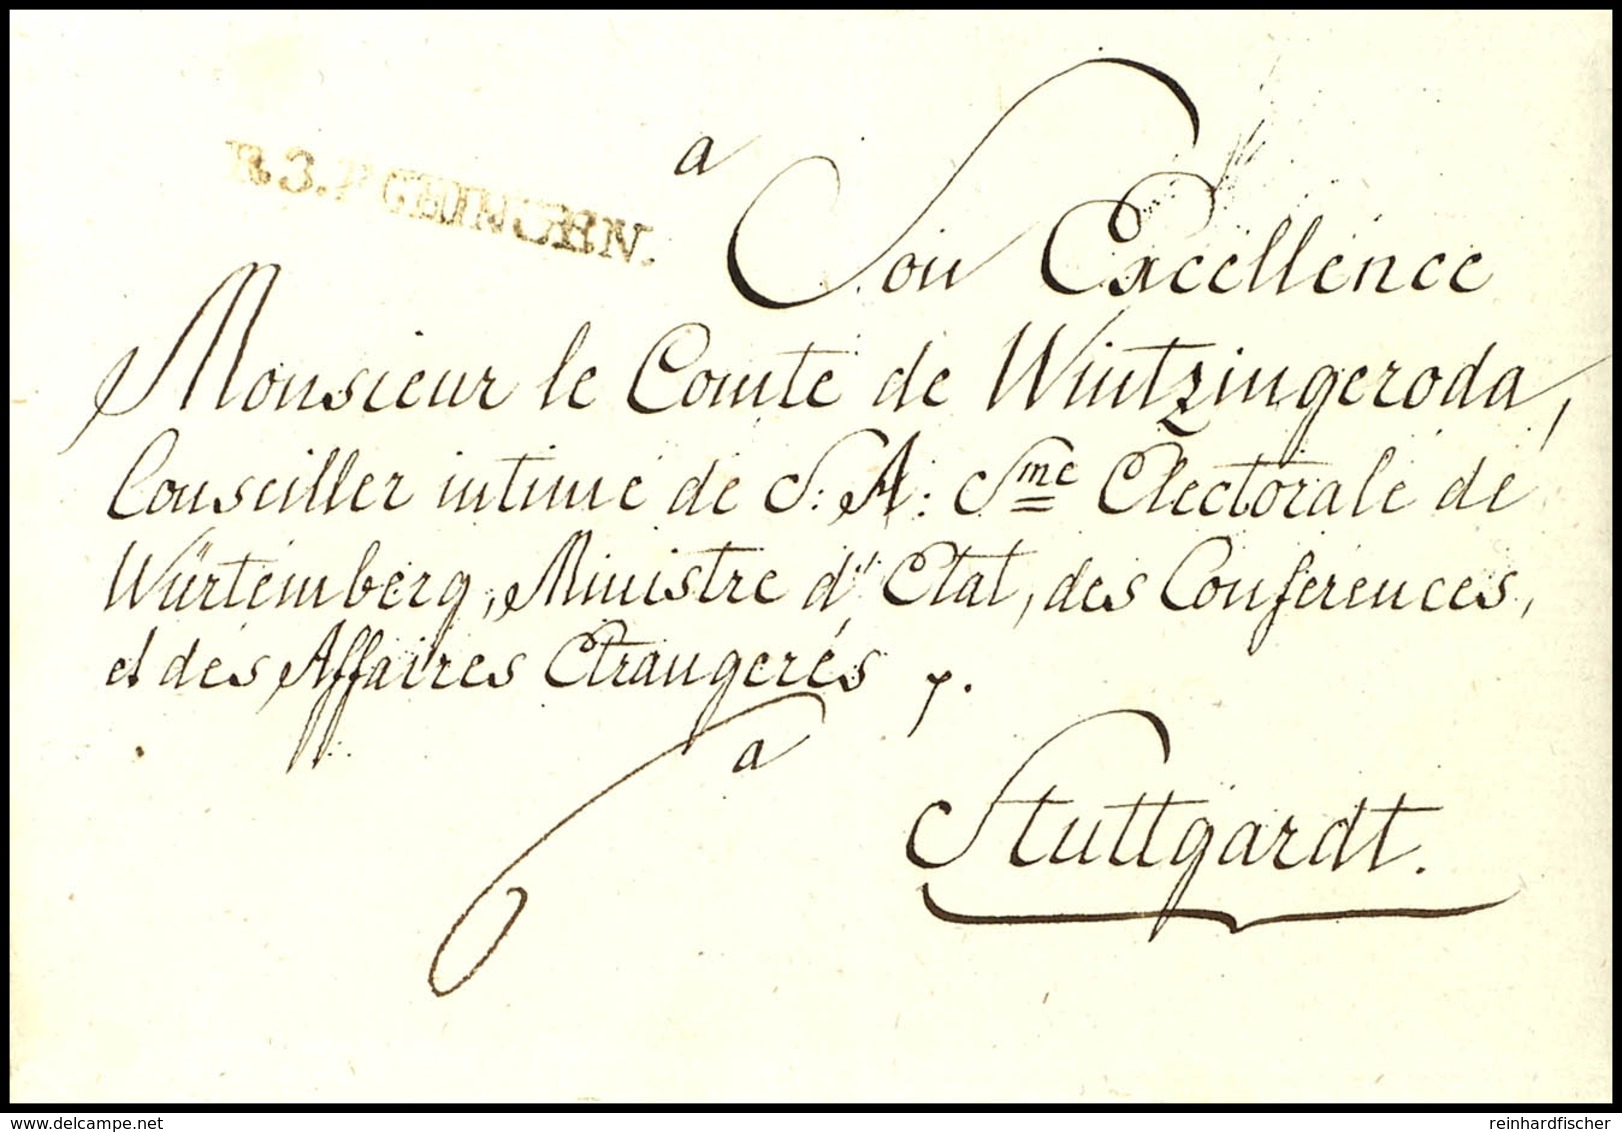 a
Son Excellence
Monsieur le Comte de Wintzingeroda,
Conseiller intime de S: A: Sme Electorale de
Würtemberg, Ministre d'Etat, des Conferences,
et des Affaires Etrangerés
a
Stuttgardt.
www.delcampe.net
reinhardfischer